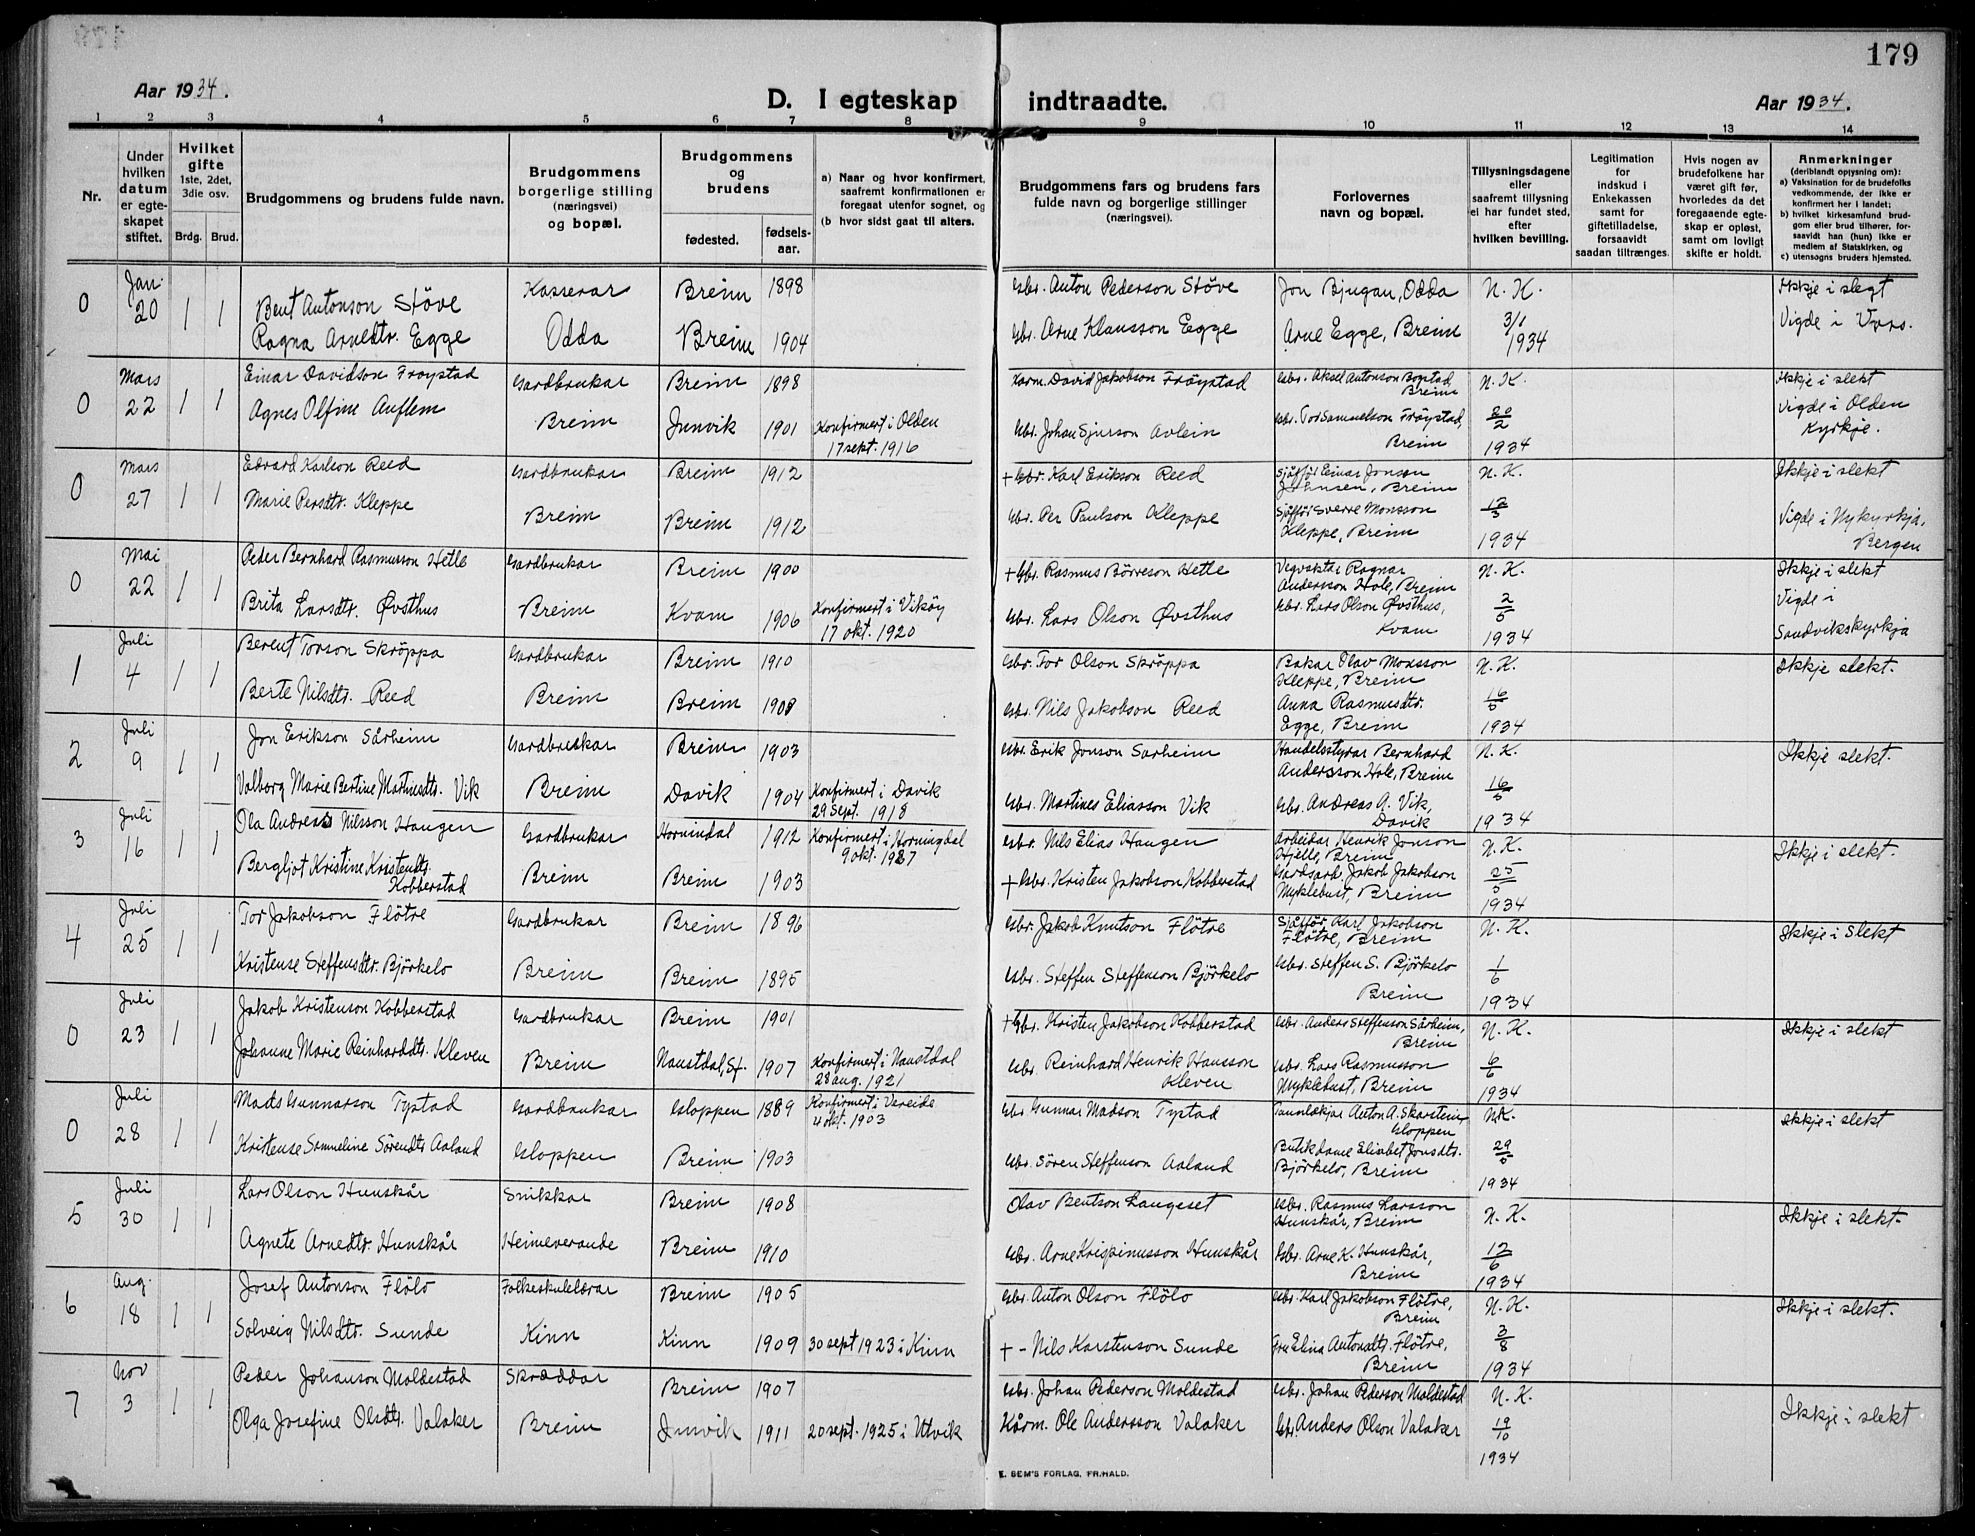 179
Aar 1934.
D. I egteskap indtraadte.
Aar 1934.
1 2 3 4 5 6 7 8 9 10 11 12 13 14
Nr.
Under hvilken datum er egteskapet stiftet.
Hvilket gifte 1ste, 2det, 3die osv.
Brdg. Brud.
Brudgommens og brudens fulde navn.
Brudgommens borgerlige stilling (næringsvei) og bopæl.
Brudgommens og brudens
fødested.
fødselsaar.
a) Naar og hvor konfirmert, saafremt konfirmationen er foregaat utenfor sognet, og
(b hvor sidst gaat til alters.
Brudgommens fars og brudens fars fulde navn og borgerlige stillinger (næringsvei).
Forlovernes navn og bopæl.
Tillysningsdagene eller saafremt tillysning ei har fundet sted, efter hvilken bevilling.
Legitimation for indskud i Enkekassen samt for giftetilladelse, forsaavidt saadan tiltrænges.
Hvis nogen av brudefolkene har været gift før, hvorledes da det foregaaende egteskap er opløst, samt om lovligt skifte er holdt.
Anmerkninger (deriblandt oplysning om):
a) Vaksination for de brudefolks vedkommende, der ikke er konfirmert her i landet;
b) hvilket kirkesamfund brudgom eller brud tilhører, forsaavidt han (hun) ikke er medlem af Statskirken, og
c) utensogns bruders hjemsted.
0 Jan. 20 1 1 Bent Antonson Støve Kasserar Breim 1898 Gbr. Anton Pederson Støve Jon Bjugan, Odda N. K. Ikkje i slegt
Ragna Arnedtr. Egge Odda Breim 1904 Gbr. Arne Klausson Egge Arne Egge, Breim 3/1 1934 Vigde i Vors.
0 Mars 22 1 1 Einar Davidson Frøystad Gardbrukar Breim 1898 Kårm. David Jakobson Frøystad Gbr. Aksel Antonson Bogstad, Breim N. K. Ikkje i slekt
Agnes Olfine Auflem Breim Innvik 1901 Konfirmert i Olden 17 sekt. 1916 Gbr. Johan Sjurson Avlein Gbr. Tor Samuelson Frøystad, Breim 20/2 1934 Vigde i Olden Kyrkje.
0 Mars 27 1 1 Edvard Karlson Reed Gardbrukar Breim 1912 + Gbr. Karl Erikson Reed Sjåfør Einar Jonson Johnsen, Breim N. K. Ikkje i slekt
Marie Persdtr. Kleppe Breim Breim 1912 Gbr. Per Paulson Kleppe Sjåfør Sverre Monsson Kleppe, Breim 12/3 1934 Vigde i Nykyrkja, Bergen
0 Mai 22 1 1 Peder Bernhard Rasmusson Hetle Gardbrukar Breim 1900 + Gbr. Rasmus Børreson Hetle Vegvaktar Ragnar Andersson Hole, Breim N. K. Ikkje i slekt
Brita Larsdtr. Øvsthus Breim Kvam 1906 Konfirmert i Vikøy 17 okt. 1920 Gbr. Lars Olson Øvsthus Gbr. Lars Olson Øvsthus, Kvam 2/5 1934 Vigde i Sandvikskyrkja
1 Juli 4 1 1 Berent Torson Skrøppa Gardbrukar Breim 1910 Gbr. Tor Olson Skrøppa Bakar Olav Monsson Kleppe, Breim N. K. Ikkje slekt.
Berte Nilsdtr. Reed Breim Breim 1908 Gbr. Nils Jakobson Reed Anna Rasmusdtr. Egge, Breim 16/5 1934
2 Juli 9 1 1 Jon Erikson Sårheim Gardbrukar Breim 1903 Gbr. Erik Jonson Sårheim Handelsstyrar Bernhard Andersson Hole, Breim N. K. Ikkje slekt.
Valborg Marie Bertine Martinusdtr. Vik Breim Davik 1904 Konfirmert i Davik 29 sept. 1918 Gbr. Martines Eliasson Vik Gbr. Andreas A. Vik, Davik 16/5 1934
3 Juli 16 1 1 Ola Andreas Nilsson Haugen Gardbrukar Hornindal 1912 Konfirmert i Horningdal 9 okt. 1927 Gbr. Nils Elias Haugen Arbeidar Henrik Jonson Hjelle, Breim N. K. Ikkje i slekt.
Bergljot Kristine Kristendtr. Kobberstad Breim Breim 1903 + Gbr. Kristen Jakobson Kobberstad Gardsarb. Jakob Jakobson Myklebust, Breim 25/5 1934
4 Juli 25 1 1 Tor Jakobson Fløtre Gardbrukar Breim 1896 Gbr. Jakob Knutson Fløtre Sjåfør Karl Jakobson Fløtre, Breim N. K. Ikkje i Slekt
Kristense Steffensdtr. Bjørkelo Breim Breim 1895 Gbr. Steffen Steffenson Bjørkelo Gbr. Steffen S. Bjørkelo Breim 1/6 1934
0 Juli 23 1 1 Jakob Kristenson Kobberstad Gardbrukar Breim 1901 + Gbr. Kristen Jakobson Kobberstad Gbr. Anders Steffenson Sårheim, Breim N. K. Ikkje i slekt
Johanne Marie Reinharddtr. Kleven Breim Naustdal, Sf. 1907 Konfirmert i Naustdal 28 aug. 1921 Gbr. Reinhard Henrik Hansson Kleven Gbr. Lars Rasmusson Myklebust, Breim 6/6 1934
0 Juli 28 1 1 Mads Gunnarson Tystad Gardbrukar Gloppen 1889 Konfirmert i Vereide 4 okt. 1903 Gbr Gunnar Madson Tystad Tannlækjar Anton A. Skarstein, Gloppen N.K. Ikkje i slekt
Kristense Samueline Sørendtr. Aaland Gloppen Breim 1903 Gbr. Søren Steffenson Aaland Butikdame Elisabet Jonsdtr. Bjørkelo, Breim 29/5 1934
5 Juli 30 1 1 Lars Olson Hunskår Snikkar Breim 1908 Olav Bentson Langeset Gbr. Rasmus Larsson Hunskår, Breim N. K. Ikkje i slekt.
Agnete Arnedtr. Hunskår Heimeverande Breim 1910 Gbr. Arne Krispinusson Hunskår Gbr. Arne K. Hunskår, Breim 12/6 1934
6 Aug. 18 1 1 Josef Antonson Flølo Folkeskulelærar Breim 1905 Gbr. Anton Olson Flølo Gbr. Karl Jakobson Fløtre, Breim N. K. Ikkje i slekt.
Solveig Nilsdtr. Sunde Kinn Kinn 1909 30 sept 1923 i Kinn + - Nils Karstenson Sunde Fru Elina Antonsdtr. Fløtre, Breim 3/8 1934
7 Nov 3 1 1 Peder Johanson Moldestad Skræddar Breim 1907 Gbr. Johan Pederson Moldestad Gbr. Johan Pederson Moldestad N. K. Ikkje i slekt
Olga Josefine Olsdtr. Valaker Breim Innvik 1911 20 sept. 1925 i Utvik Kårm. Ole Andersson Valaker Gbr. Anders Olson Valaker 19/10 1934
E. SEM'S FORLAG, FR.HALD.